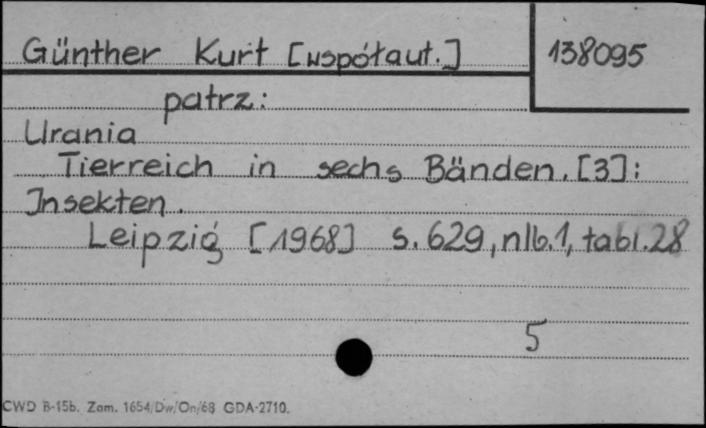 Günther Kurt [wspótaut.] 138095
patrz:
Urania
Tierreich in sechs Bänden. [3]:
Insekten.
Leipzig [1968] s. 629, nlb. 1, tabl. 28
5
CWD B-15b. Zam. 1654/Dw/On/68 GDA-2710.